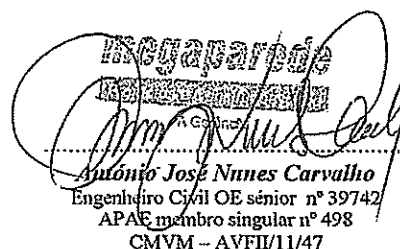 megaparede
A Gerência
António José Nunes Carvalho
Engenheiro Civil OE sénior nº 39742
APAE membro singular nº 498
CMVM – AVFII/11/47